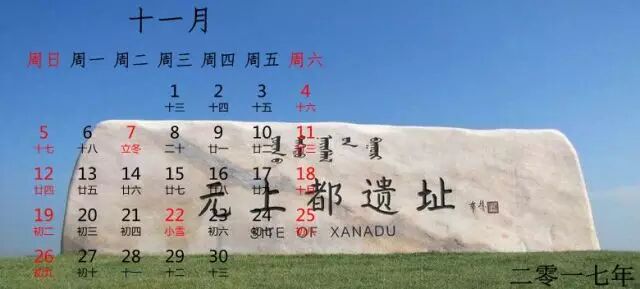 十一月
周日 周一 周二 周三 周四 周五 周六
1 2 3 4
十三 十四 十五 十六
5 6 7 8 9 10 11
十七 十八 立冬 二十 廿一 廿二 廿三
12 13 14 15 16 17 18
廿四 廿五 廿六 廿七 廿八 廿九 十月
元上都遗址
19 20 21 22 23 24 25
初二 初三 初四 小雪 初六 初七 初八
SITE OF XANADU
26 27 28 29 30
初九 初十 十一 十二 十三
二零一七年